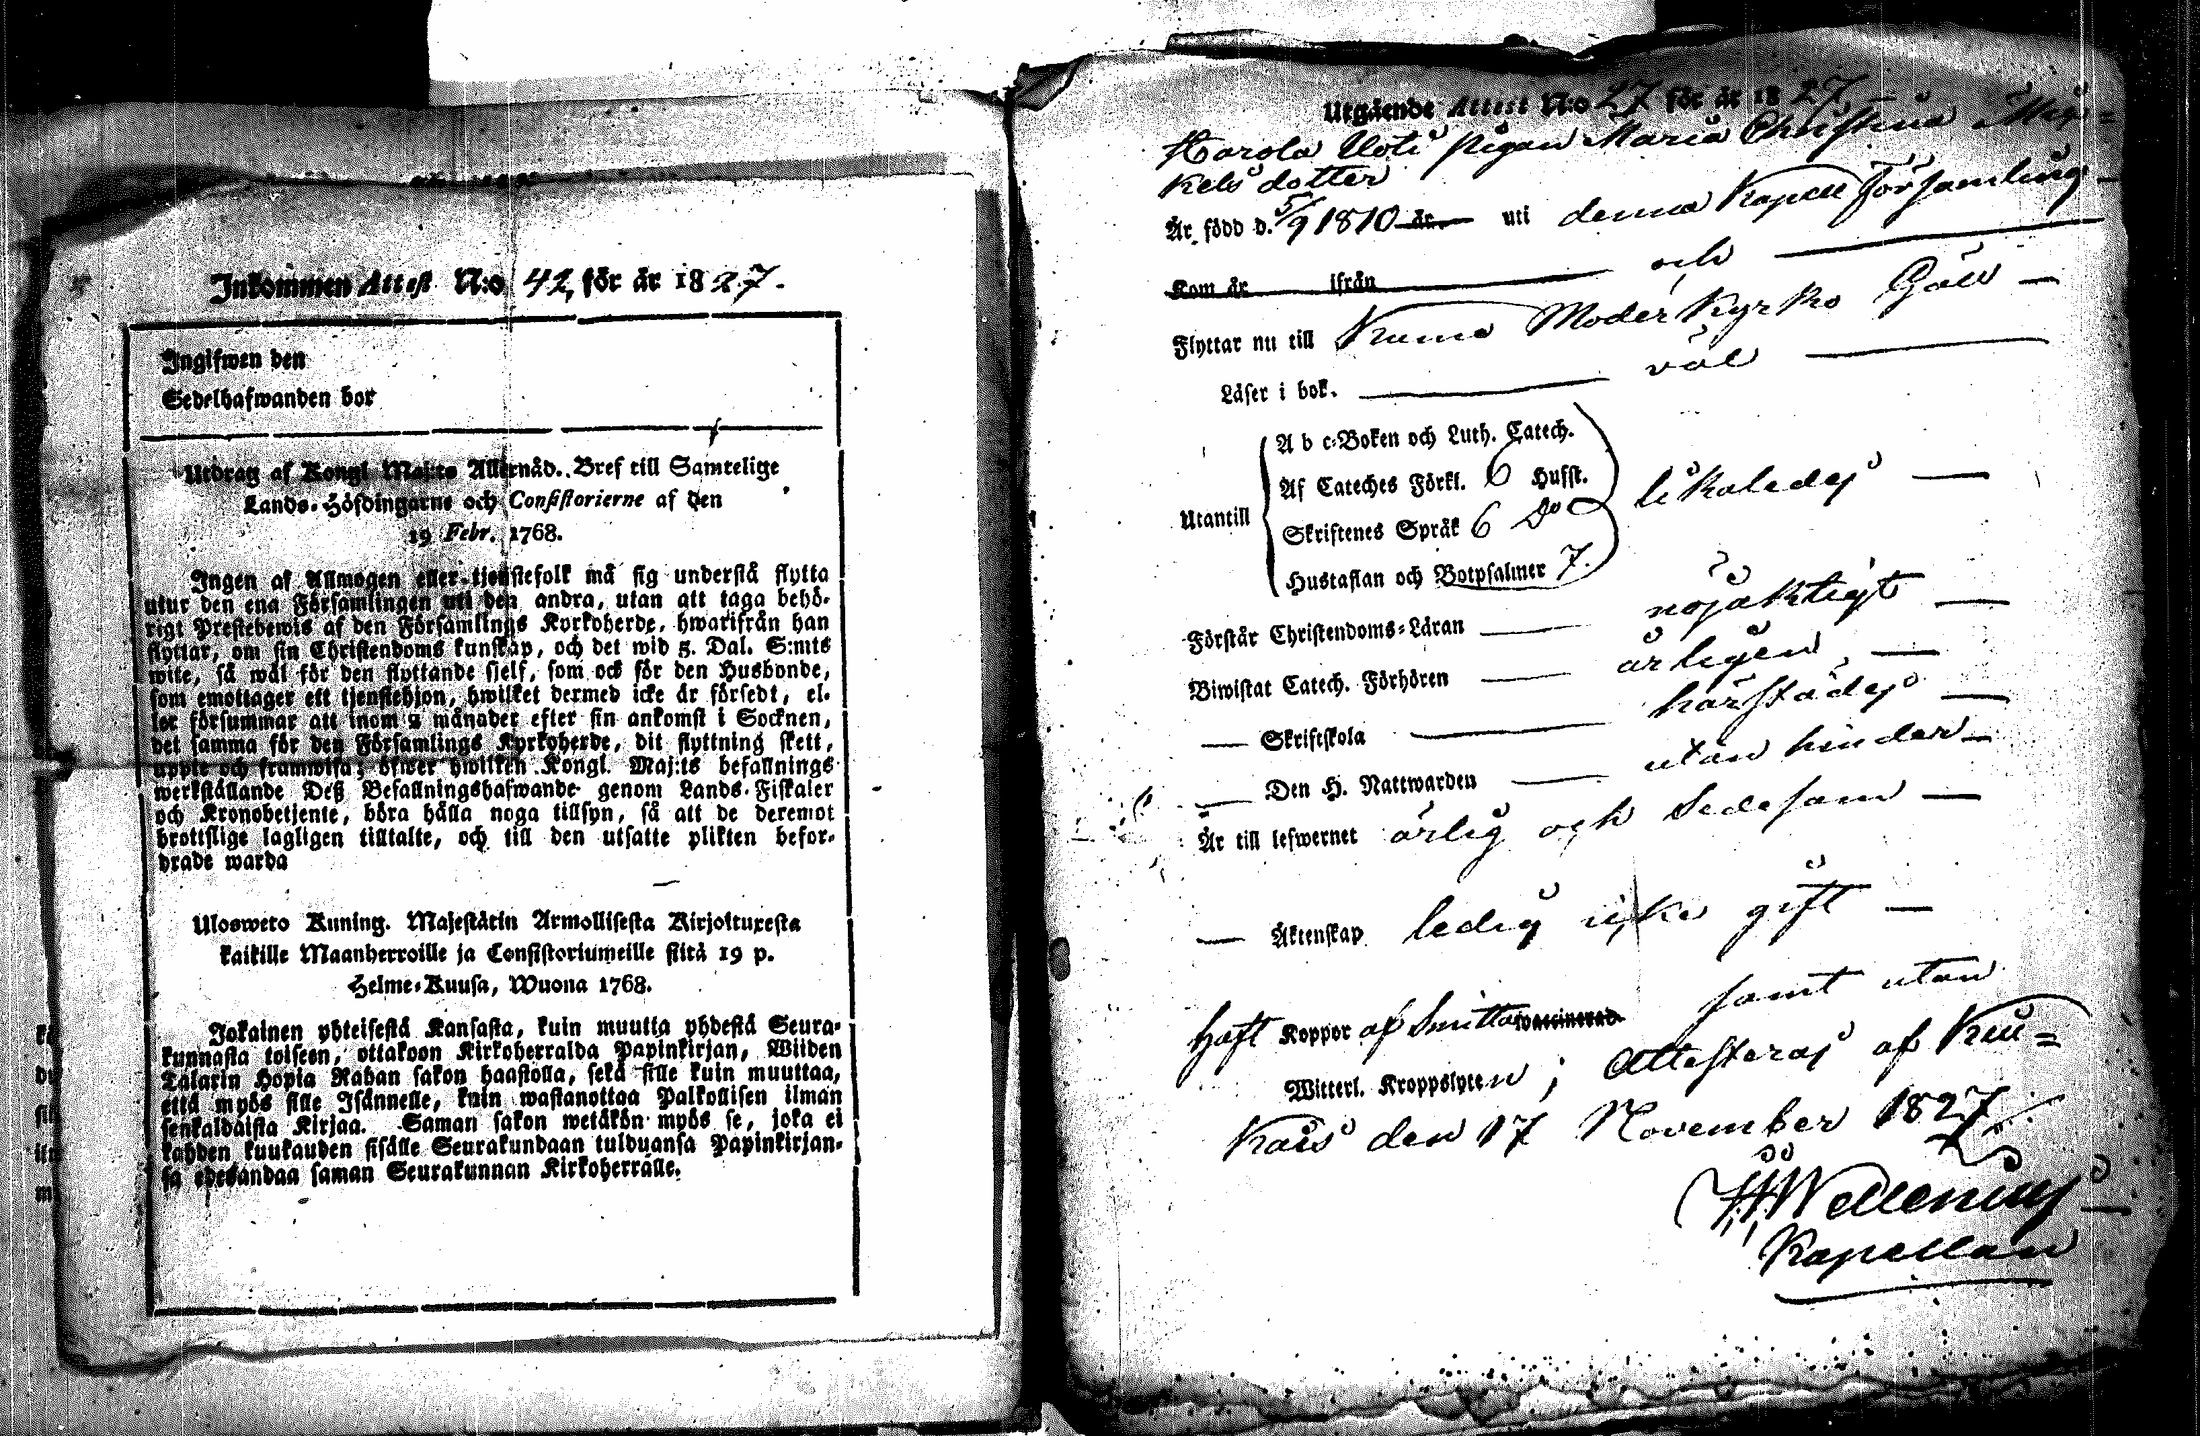 Inkommen Attest N:o 42, för år 1827.
Ingifwen den
Sedelhafwanden bor
Utdrag af Kongl Maj:ts Allernåd. Bref till Samtelige
Lands-Höfdingarne och Consistorierne af den
19 Febr. 1768.
Ingen af Allmogen eller tjenstefolk må sig understå flytta
utur den ena Församlingen uti den andra, utan att taga behö-
rigt Prestebewis af den Församlings Kyrkoherde, hwarifrån han
flyttar, om sin Christendoms kunskap, och det wid 5. Dal. S:mts
wite, så wäl för den flyttande sjelf, som ock för den Husbonde,
som emottager ett tjenstehjon, hwilket dermed icke är försedt, el-
ler försummar att inom 2 månader efter sin ankomst i Socknen,
det samma för den Församlings Kyrkoherde, dit flyttning skett,
uppte och framwisa; öfwer hwilken Kongl. Maj:ts befallnings
werkställande Deß Befallningshafwande genom Lands-Fiskaler
och Kronobetjente, böra hålla noga tillsyn, så att de deremot
brottslige lagligen tilltalte, och till den utsatte plikten befor-
drade warda
Ulosweto Kuning. Majestätin Armollisesta Kirjoituxesta
kaikille Maanherroille ja Consistoriumeille siitä 19 p.
Helme-Kuusa, Wuona 1768.
Jokainen yhteisestä Kansasta, kuin muutta yhdestä Seura-
kunnasta toiseen, ottakoon Kirkoherralda Papinkirjan, Wiiden
Talarin Hopia Rahan sakon haastolla, sekä sille kuin muuttaa,
että myös sille Isännelle, kuin wastanottaa Palkollisen ilman
senkaldaista Kirjaa. Saman sakon wetäkön myös se, joka ei
kahden kuukauden sisälle Seurakundaan tulduansa Papinkirjan-
sa edesandaa saman Seurakunnan Kirkoherralle.
Utgående Attest N:o 27 för år 1827
Harola Uoti pigan Maria Christina Mic-
kels dotter
Är född d. 5/9 1810 är. uti denna Kapell Församling
Kom år ifrån och
Flyttar nu till Kumo Moder Kyrko Gäll
Läser i bok. väl
A b c-Boken och Luth. Catech.
Af Cateches Förkl. 6 Hufst.
Utantill likaledes
Skriftenes Språk 6 Do
Hustaflan och Botpsalmer 7.
Förstår Christendoms-Läran nöjaktigt
Biwistat Catech. Förhören årligen
Skriftskola härstädes
Den H. Nattwarden utan hinder
Är till lefwernet ärlig och Sedesam
Äktenskap ledig icke gift
Haft Koppor af Smitta waccinerad. samt utan
Witterl. Kroppslyten; Attesteras af Kiu-
kais den 17 November 1827.
Wellenius
Kapellan